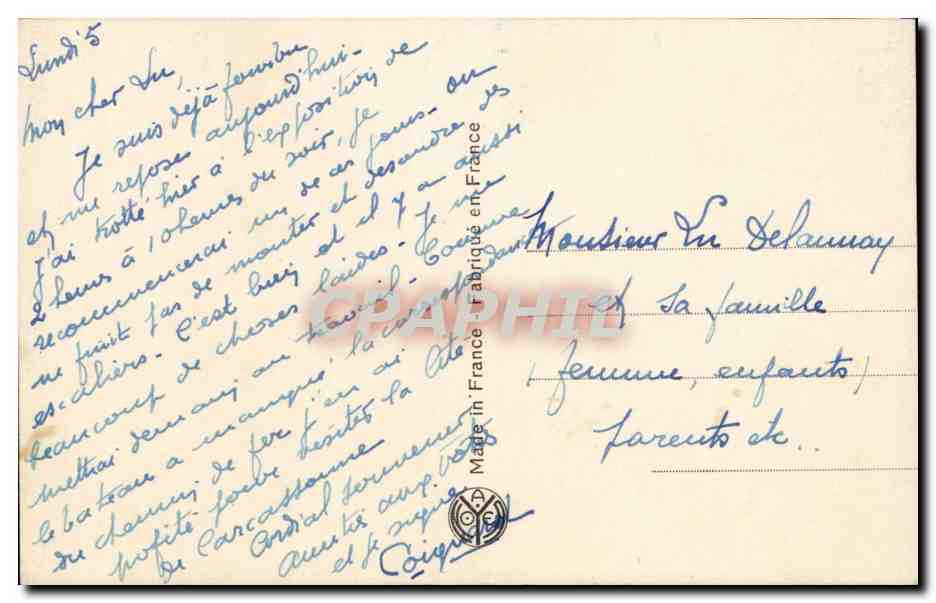 Lundi 5
Mon cher Lu,
Je suis déjà fourbu
et me repose aujourd'hui -
J'ai trotté hier à l'exposition de
2 heures à 10 heures du soir, je
recommencerai un de ces jours - on
ne finit pas de monter et descendre des
escaliers - C'est bien et il y a aussi
beaucoup de choses laides - Je me
mettrai demain au travail - Comme
le bateau a manqué la correspondance
du chemin de fer j'en ai
profité pour visiter la Cité
de Carcassonne
Cordial souvenir
amitiés aux vôtres
et je signe
Coignard
Made in France - Fabriqué en France
YVON
Monsieur Lu Delaunay
et sa famille
(femme, enfants)
parents etc..
CPAPHIL